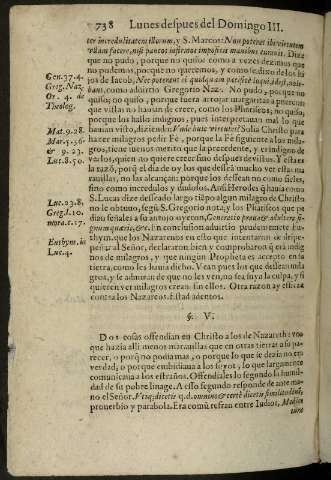 738 Lunes despues del Domingo III.
ter incredulitatem illorum, y S. Marcos: Non poterat ibi virtutem
vllam facere, nisi paucos infirmos impositis manibus curauit. Dize
que no pudo, porque no quiso: como a vezes dezimos que
no podemos, porque no queremos, y como se dixo de los hi
jos de Iacob, Nec poterant ei quidquam pacifice loqui,
como aduirtio Gregorio Naz. No pudo, porque no
quiso; no quiso, porque fuera arrojar margaritas a puercos:
que vistas no hauian de creer, como los Phariseos; no quiso,
porque los hallo indignos, pues interpretauan mal lo que
hauian visto, diziendo: Vnde huic virtutes? Solia Christo para
hazer milagros pedir Fè, porque la Fè siguiente a los mila-
gros, tiene menos merito que la precedente, y es indigno de
verlos, quien no quiere creer sino despues de vistos. Y esta es
la razõ, porq̃ el dia de oy los que desseã mucho ver estas ma
rauillas, no las alcançan: porque los dessean no como fieles,
sino como incredulos y dudosos. Assi Herodes q̃ hauia como
S. Lucas dize desseado largo tiẽpo algun milagro de Christo
no le obtuuo, segũ S. Gregorio nota, y los Phariseos que pe
dian señales a su antojo oyeron, Generatio praua & adultera si-
gnum quærit, &c. En conclusion aduirtio prudentemente Eu
thym. que los Nazarenos en esto que intentaron de despe-
ñar al Señor, declararon bien y comprobaron q̃ era indig
nos de milagros, y que ningun Propheta es accepto en su
tierra, como les hauia dicho. Vean pues los que dessean mila
gros, y se admiran de que no les ven, no sea suya la culpa, y si
quieren ver milagros crean sin ellos. Otra razon ay essa cõ
contra los Nazareos. Estad atentos.
§. V.
Dos cosas offendian en Christo a los de Nazareth: vna
que hazia alli menos marauillas que en otras tierras a su pa-
recer, o porq̃ no podia mas, o porque lo que se dezia no era
verdad, o porque embidiaua a los suyos, lo que largamente
comunicaua a los estraños. Offendiales lo segundo la humil-
dad de su pobre linage. A esso segundo responde de ante ma-
no el Señor. Vtiq; dicetis q.d. omnino & certè dicetis similitudinẽ,
prouerbio y parabola. Era comũ refran entre Iudios, Medice
cura
Gen. 37.4.
Greg. Naz.
Or. 4. de
Theolog.
Mat. 9. 28.
Mar. 5. 36
& 9. 23.
Luc. 8. 50.
Luc. 23.8.
Greg. l. 10.
mora. c. 17.
Euthym. in
Luc. 4.